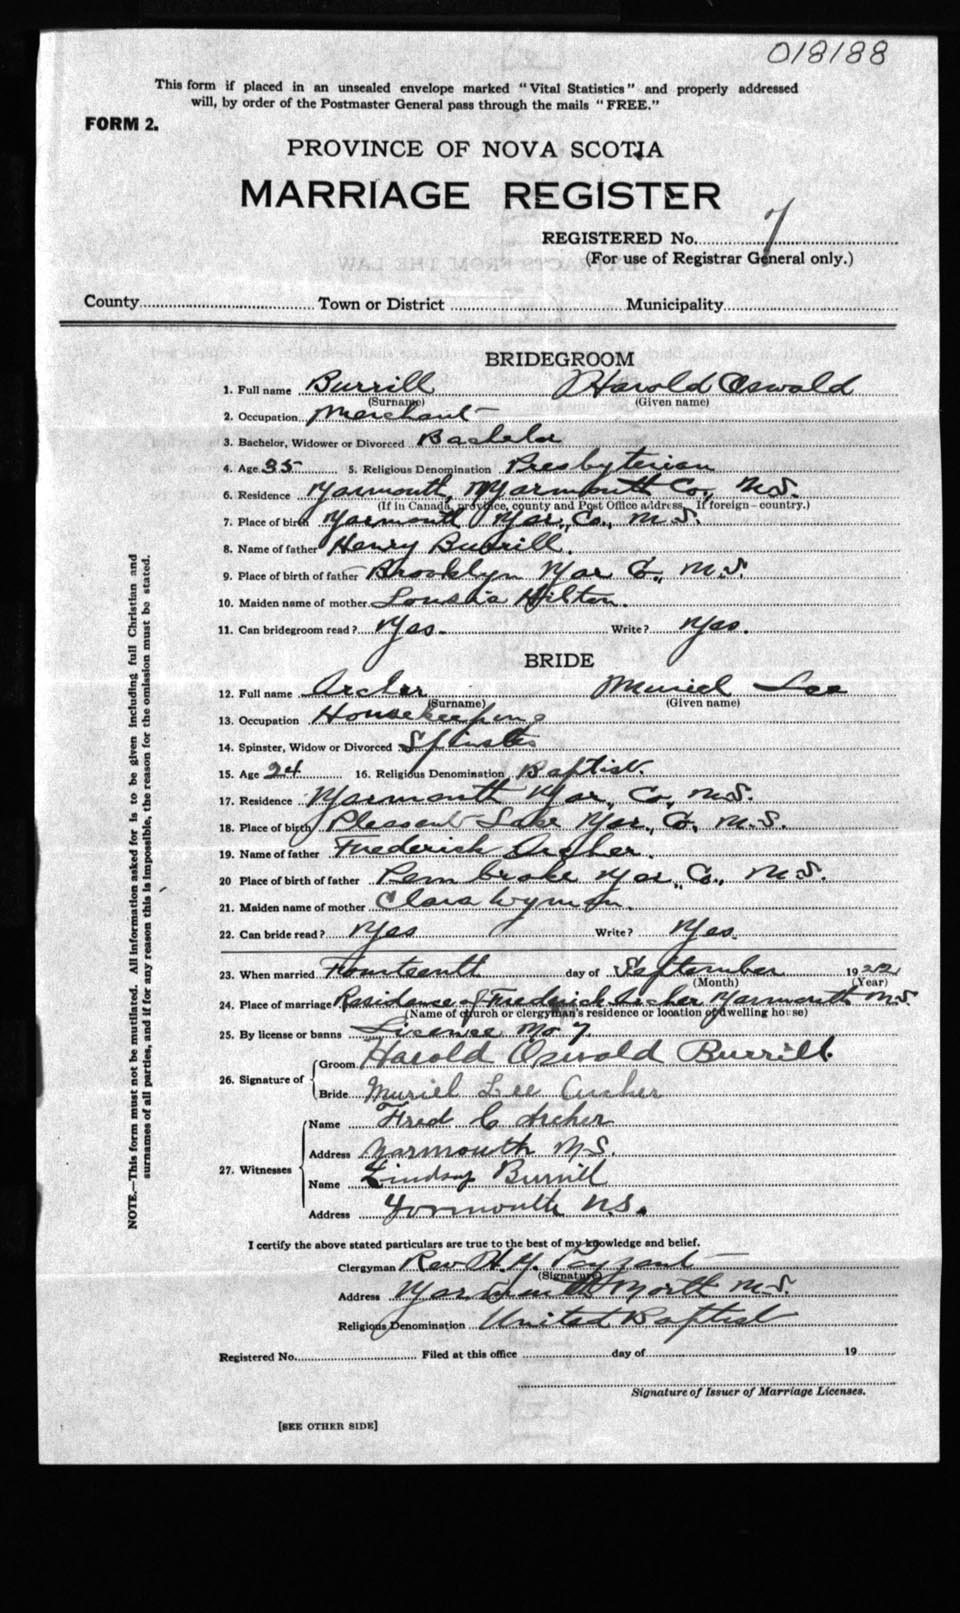 018188
This form if placed in an unsealed envelope marked "Vital Statistics" and properly addressed
will, by order of the Postmaster General pass through the mails "FREE."
FORM 2.
PROVINCE OF NOVA SCOTIA
MARRIAGE REGISTER
REGISTERED No. 7
(For use of Registrar General only.)
County Town or District Municipality
BRIDEGROOM
1. Full name Burrill Harold Oswald
(Surname) (Given name)
2. Occupation Merchant
3. Bachelor, Widower or Divorced Bachelor
4. Age 35 5. Religious Denomination Presbyterian
6. Residence Yarmouth, Yarmouth Co., N.S.
(If in Canada, province, county and Post Office address. If foreign—country.)
7. Place of birth Yarmouth Yar., Co., N.S.
8. Name of father Henry Burrill.
9. Place of birth of father Brooklyn Yar Co., N.S.
10. Maiden name of mother Hilton.
11. Can bridegroom read? Yes. Write? Yes.
BRIDE
12. Full name Archer Muriel Lee
(Surname) (Given name)
13. Occupation Housekeeping
14. Spinster, Widow or Divorced Spinster
15. Age 24 16. Religious Denomination Baptist.
17. Residence Yarmouth Yar., Co., N.S.
18. Place of birth Pleasant Lake Yar., Co., N.S.
19. Name of father Frederick Archer.
20 Place of birth of father Pembroke Yar., Co., N.S.
21. Maiden name of mother Clara Wyman.
22. Can bride read? Yes Write? Yes.
23. When married Fourteenth day of September 1922
(Month) (Year)
24. Place of marriage Residence of Frederick Archer Yarmouth N.S
(Name of church or clergyman's residence or location of dwelling house)
25. By license or banns Licence No 7
26. Signature of
Groom Harold Oswald Burrill.
Bride Muriel Lee Archer
27. Witnesses
Name Fred C Archer
Address Yarmouth N.S.
Name Lindsay Burrill
Address Yarmouth N.S.
I certify the above stated particulars are true to the best of my knowledge and belief.
Clergyman Rev H. Y. Payzant
(Signature)
Address Yarmouth North N.S.
Religious Denomination United Baptist
Registered No. Filed at this office day of 19
Signature of Issuer of Marriage Licenses.
[SEE OTHER SIDE]
NOTE.—This form must not be mutilated. All information asked for is to be given including full Christian and
surnames of all parties, and if for any reason this is impossible, the reason for the omission must be stated.